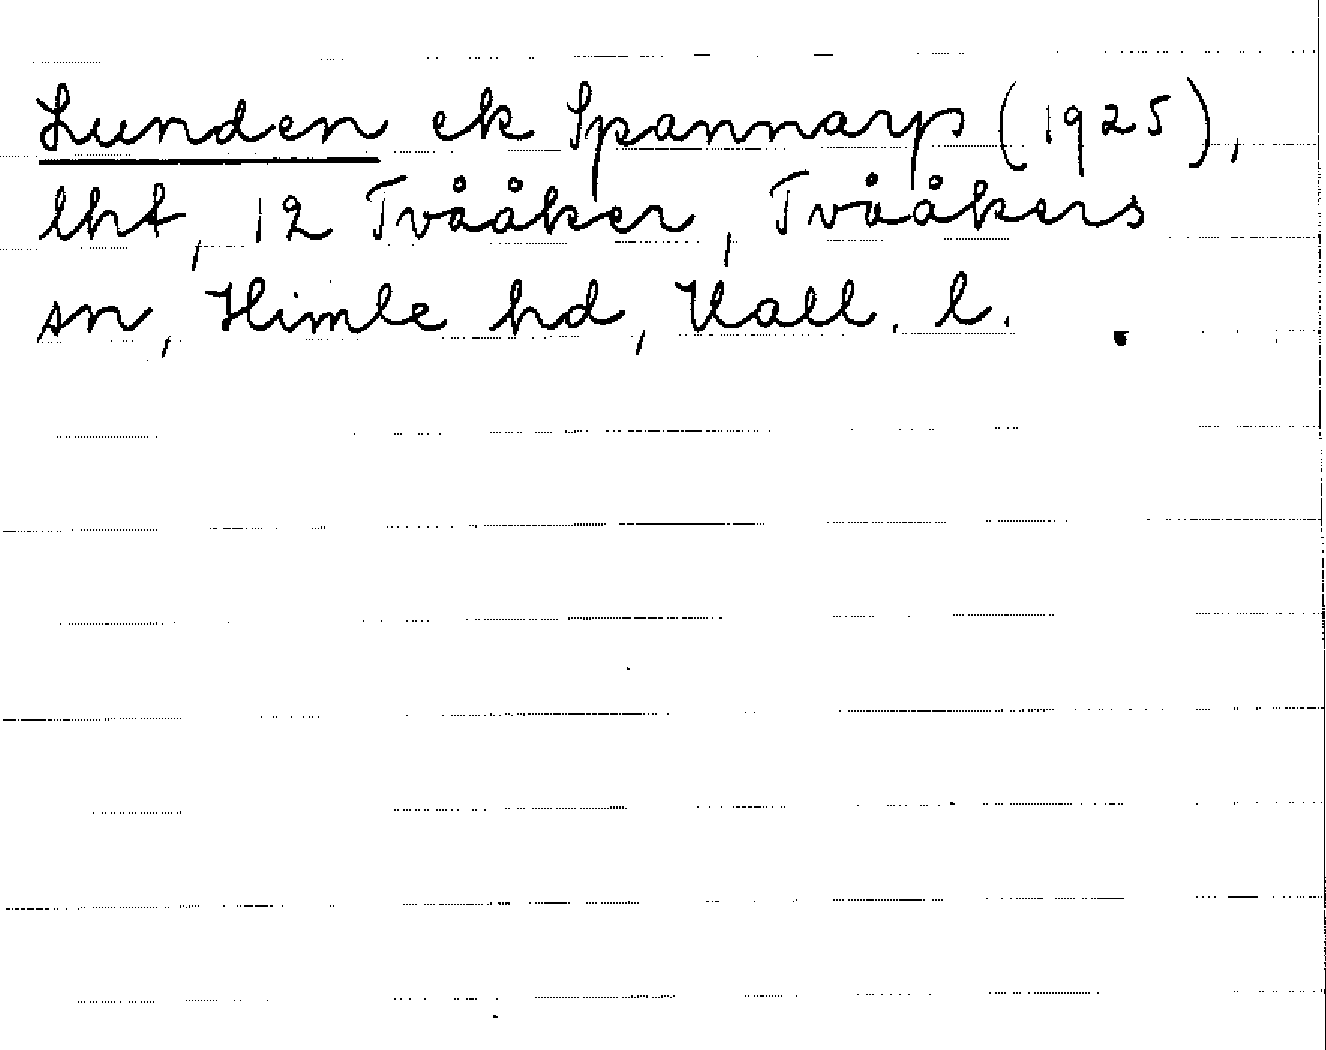 Lunden ek Spannarp (1925),
lht, 12 Tvååker, Tvååkers
sn, Himle hd, Hall. l.